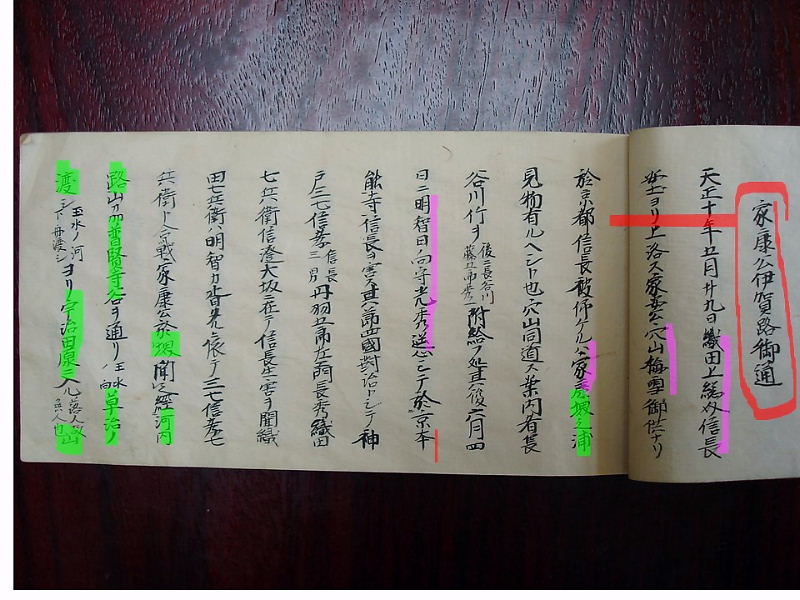 家康公伊賀路御通
天正十年五月廿九日織田上総介信長
安土ヨリ上洛ス家康公穴山梅雪御供ナリ
於京都信長被仰ケルハ家康堺之浦
見物有ルヘシト也穴山同道ス案内者長
谷川竹ヲ後ニ長谷川藤五郎秀一附給フ処其後六月二
日ニ明智日向守光秀逆心シテ於京本
能寺信長ヲ害ス其節四國對治トシテ神
戸三七信孝信長三男丹羽五郎左衛門長秀織田
七兵衛信澄大坂ニ在テ信長生害ヲ聞織
田七兵衛ハ明智カ聟也依テ三七信孝七
兵衛ト合戦家康公於堺聞之經河内
路山田普賢寺谷ヲ通リ玉水ノ向草治ノ
渡シト丹渡シ玉水ノ河ヨリ宇治田原ニ入ル